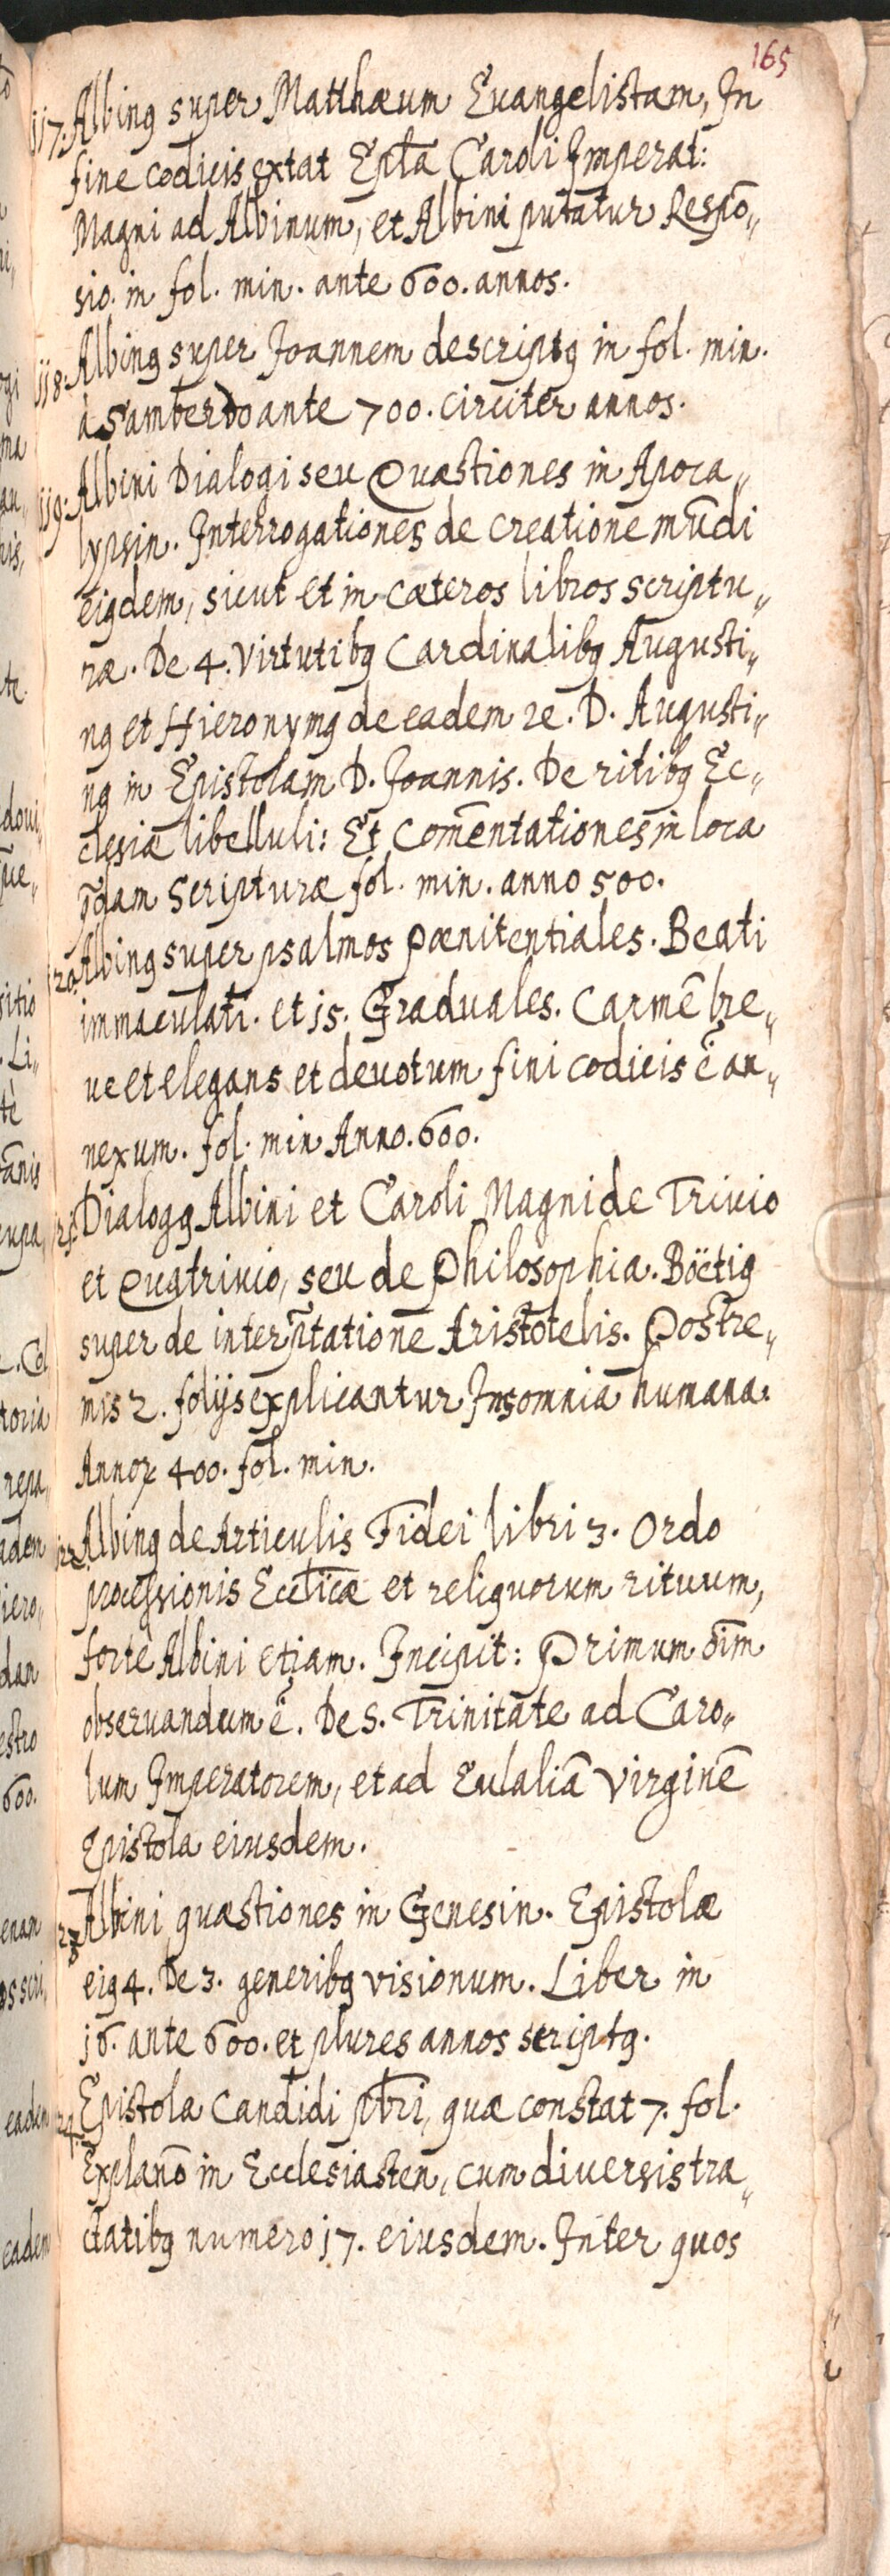 165
117. Albinꝰ super Matthæum Euangelistam, In
fine codicis extat Epl̃a Caroli Imperat:
Magni ad Albinum, et Albini putatur Respõ„
sio. in fol. min. ante 600. annos.
118. Albinꝰ super Joannem descriptꝰ in fol. min.
à Samberto ante 700. circiter annos.
119. Albini Dialogi seu Quæstiones in Apoca„
lypsin. Interrogationes de creatione mũdi
eiꝰdem, sicut et in cæteros libros scriptu„
ræ. De 4. Virtutibꝰ Cardinalibꝰ Augusti„
nꝰ et Hieronymꝰ de eadem re. D. Augusti„
nꝰ in Epistolam D. Joannis. De ritibꝰ Ec„
clesiæ libelluli: Et Comẽntationes in loca
q̃dam Scripturæ fol. min. anno 500.
120. Albinꝰ super psalmos Pœnitentiales. Beati
immaculati. et 15. Graduales. Carmẽ bre„
ue et elegans et deuotum fini codicis ẽ an„
nexum. fol. min Anno. 600.
121. Dialogꝰ Albini et Caroli Magni de Triuio
et Quatriuio, seu de Philosophia. Boëtiꝰ
super de interp̃tatione Aristotelis. Postre„
mis 2. folijs explicantur Insomnia humana.
Annoꝝ 400. fol. min.
122. Albinꝰ de Articulis Fidei libri 3. Ordo
processionis Eccl̃icæ et reliquorum rituum,
forte Albini etiam. Incipit: Primum oĩm
obseruandum ẽ. De S. Trinitate ad Caro„
lum Imperatorem, et ad Eulaliã Virginẽ
Epistola eiusdem.
123. Albini quæstiones in Genesin. Epistolæ
eiꝰ 4. De 3. generibꝰ visionum. Liber in
16. ante 600. et plures annos scriptꝰ.
124. Epistola Candidi pb̃ri, quæ constat 7. fol.
Explanõ in Ecclesiasten, cum diuersis tra„
ctatibꝰ numero 17. eiusdem. Inter quos